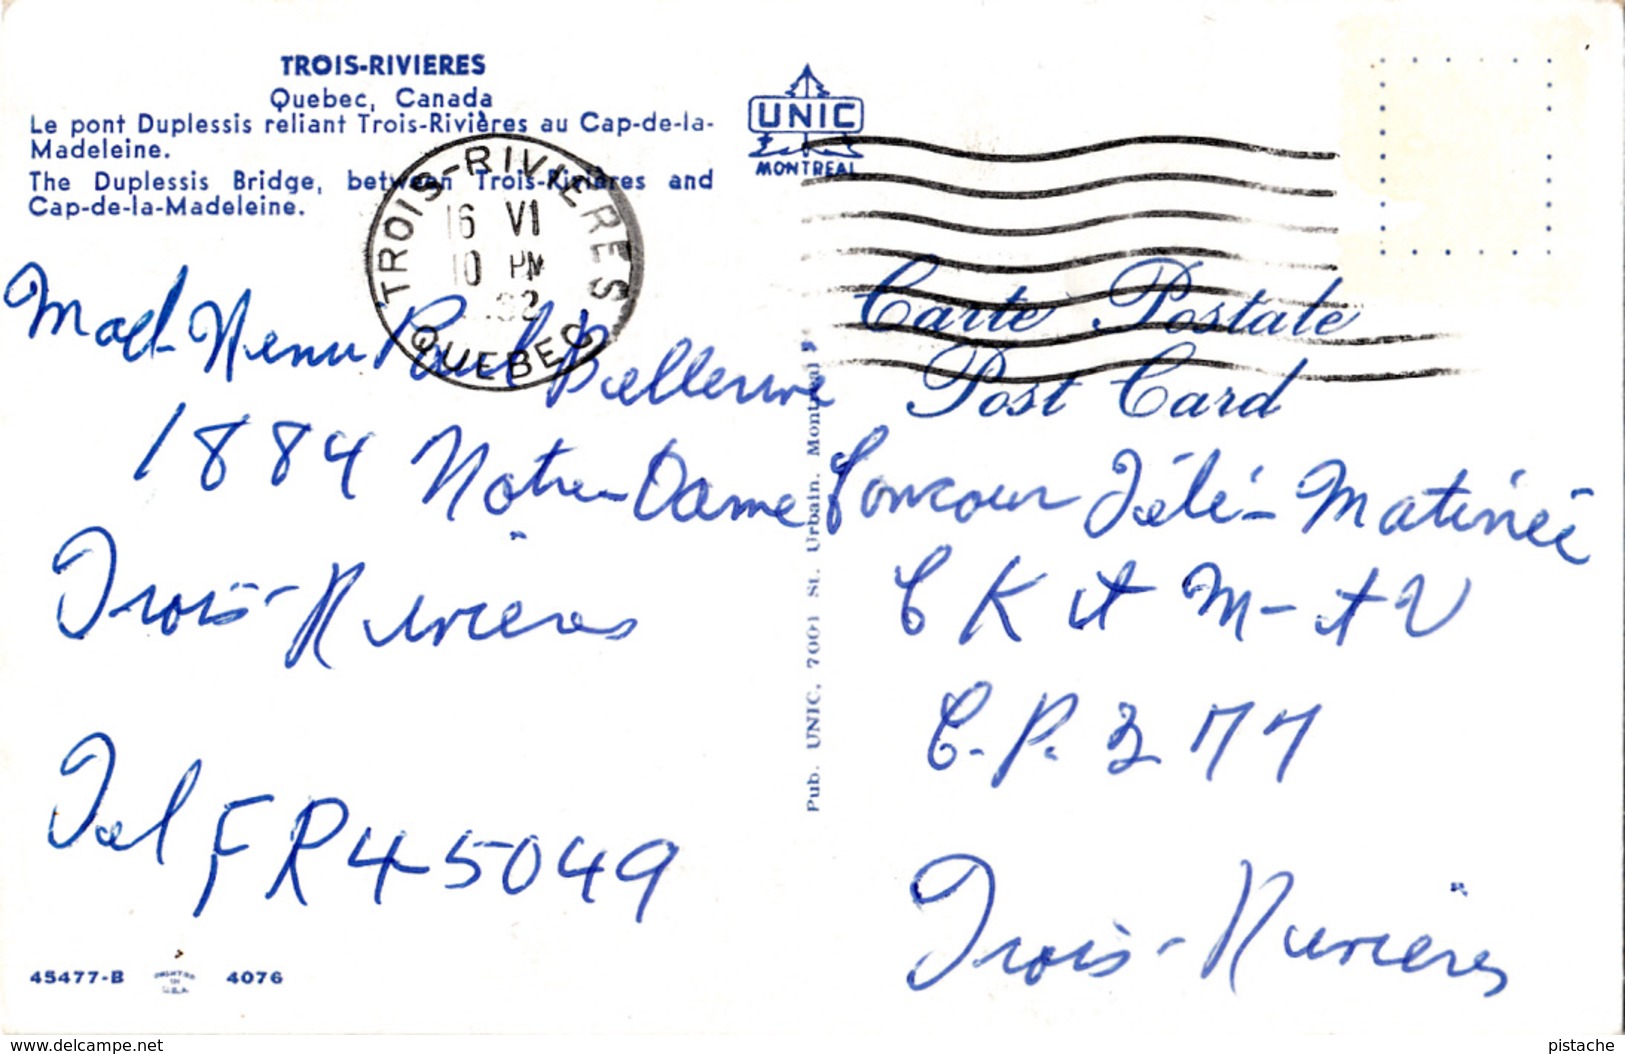 TROIS-RIVIERES
Quebec, Canada
Le pont Duplessis reliant Trois-Rivières au Cap-de-la-
Madeleine.
The Duplessis Bridge, between Trois-Rivières and
Cap-de-la-Madeleine.
UNIC
MONTREAL
TROIS-RIVIERES
16 VI
10 PM
QUEBEC
Carte Postale
Post Card
Paul Bellerive
1884 Notre-Dame
Trois-Rivières
Tel FR45049
Pub. UNIC, 7001 St. Urbain, Montreal
Concour Télé-Matinée
CKtM-tV
C.P. 277
Trois-Rivières
45477-B
PRINTED
IN
U.S.A.
4076
www.delcampe.net
pistache